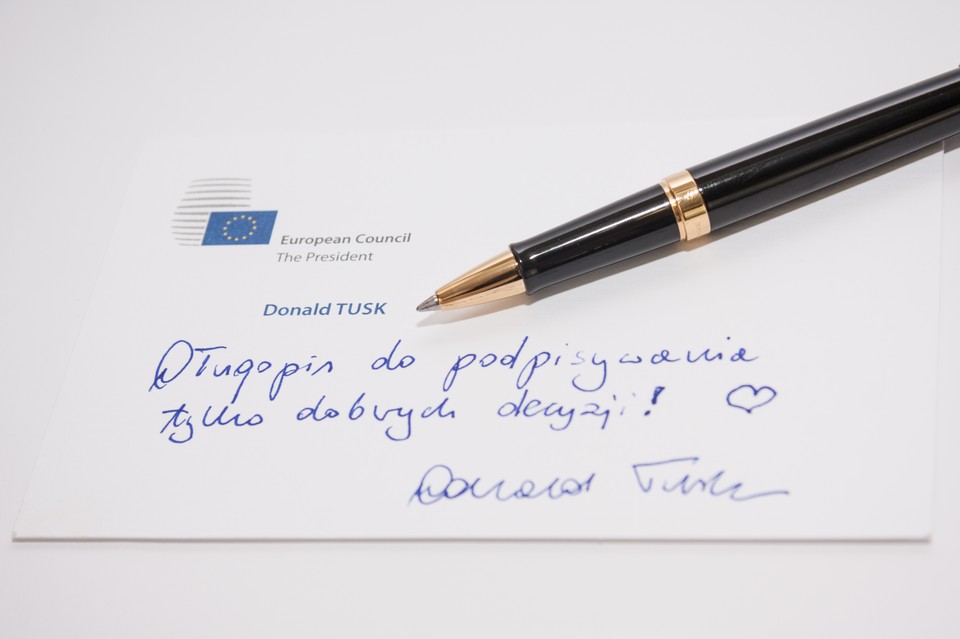 European Council
The President
Donald TUSK
Długopis do podpisywania
tylko dobrych decyzji! ♡
Donald Tusk